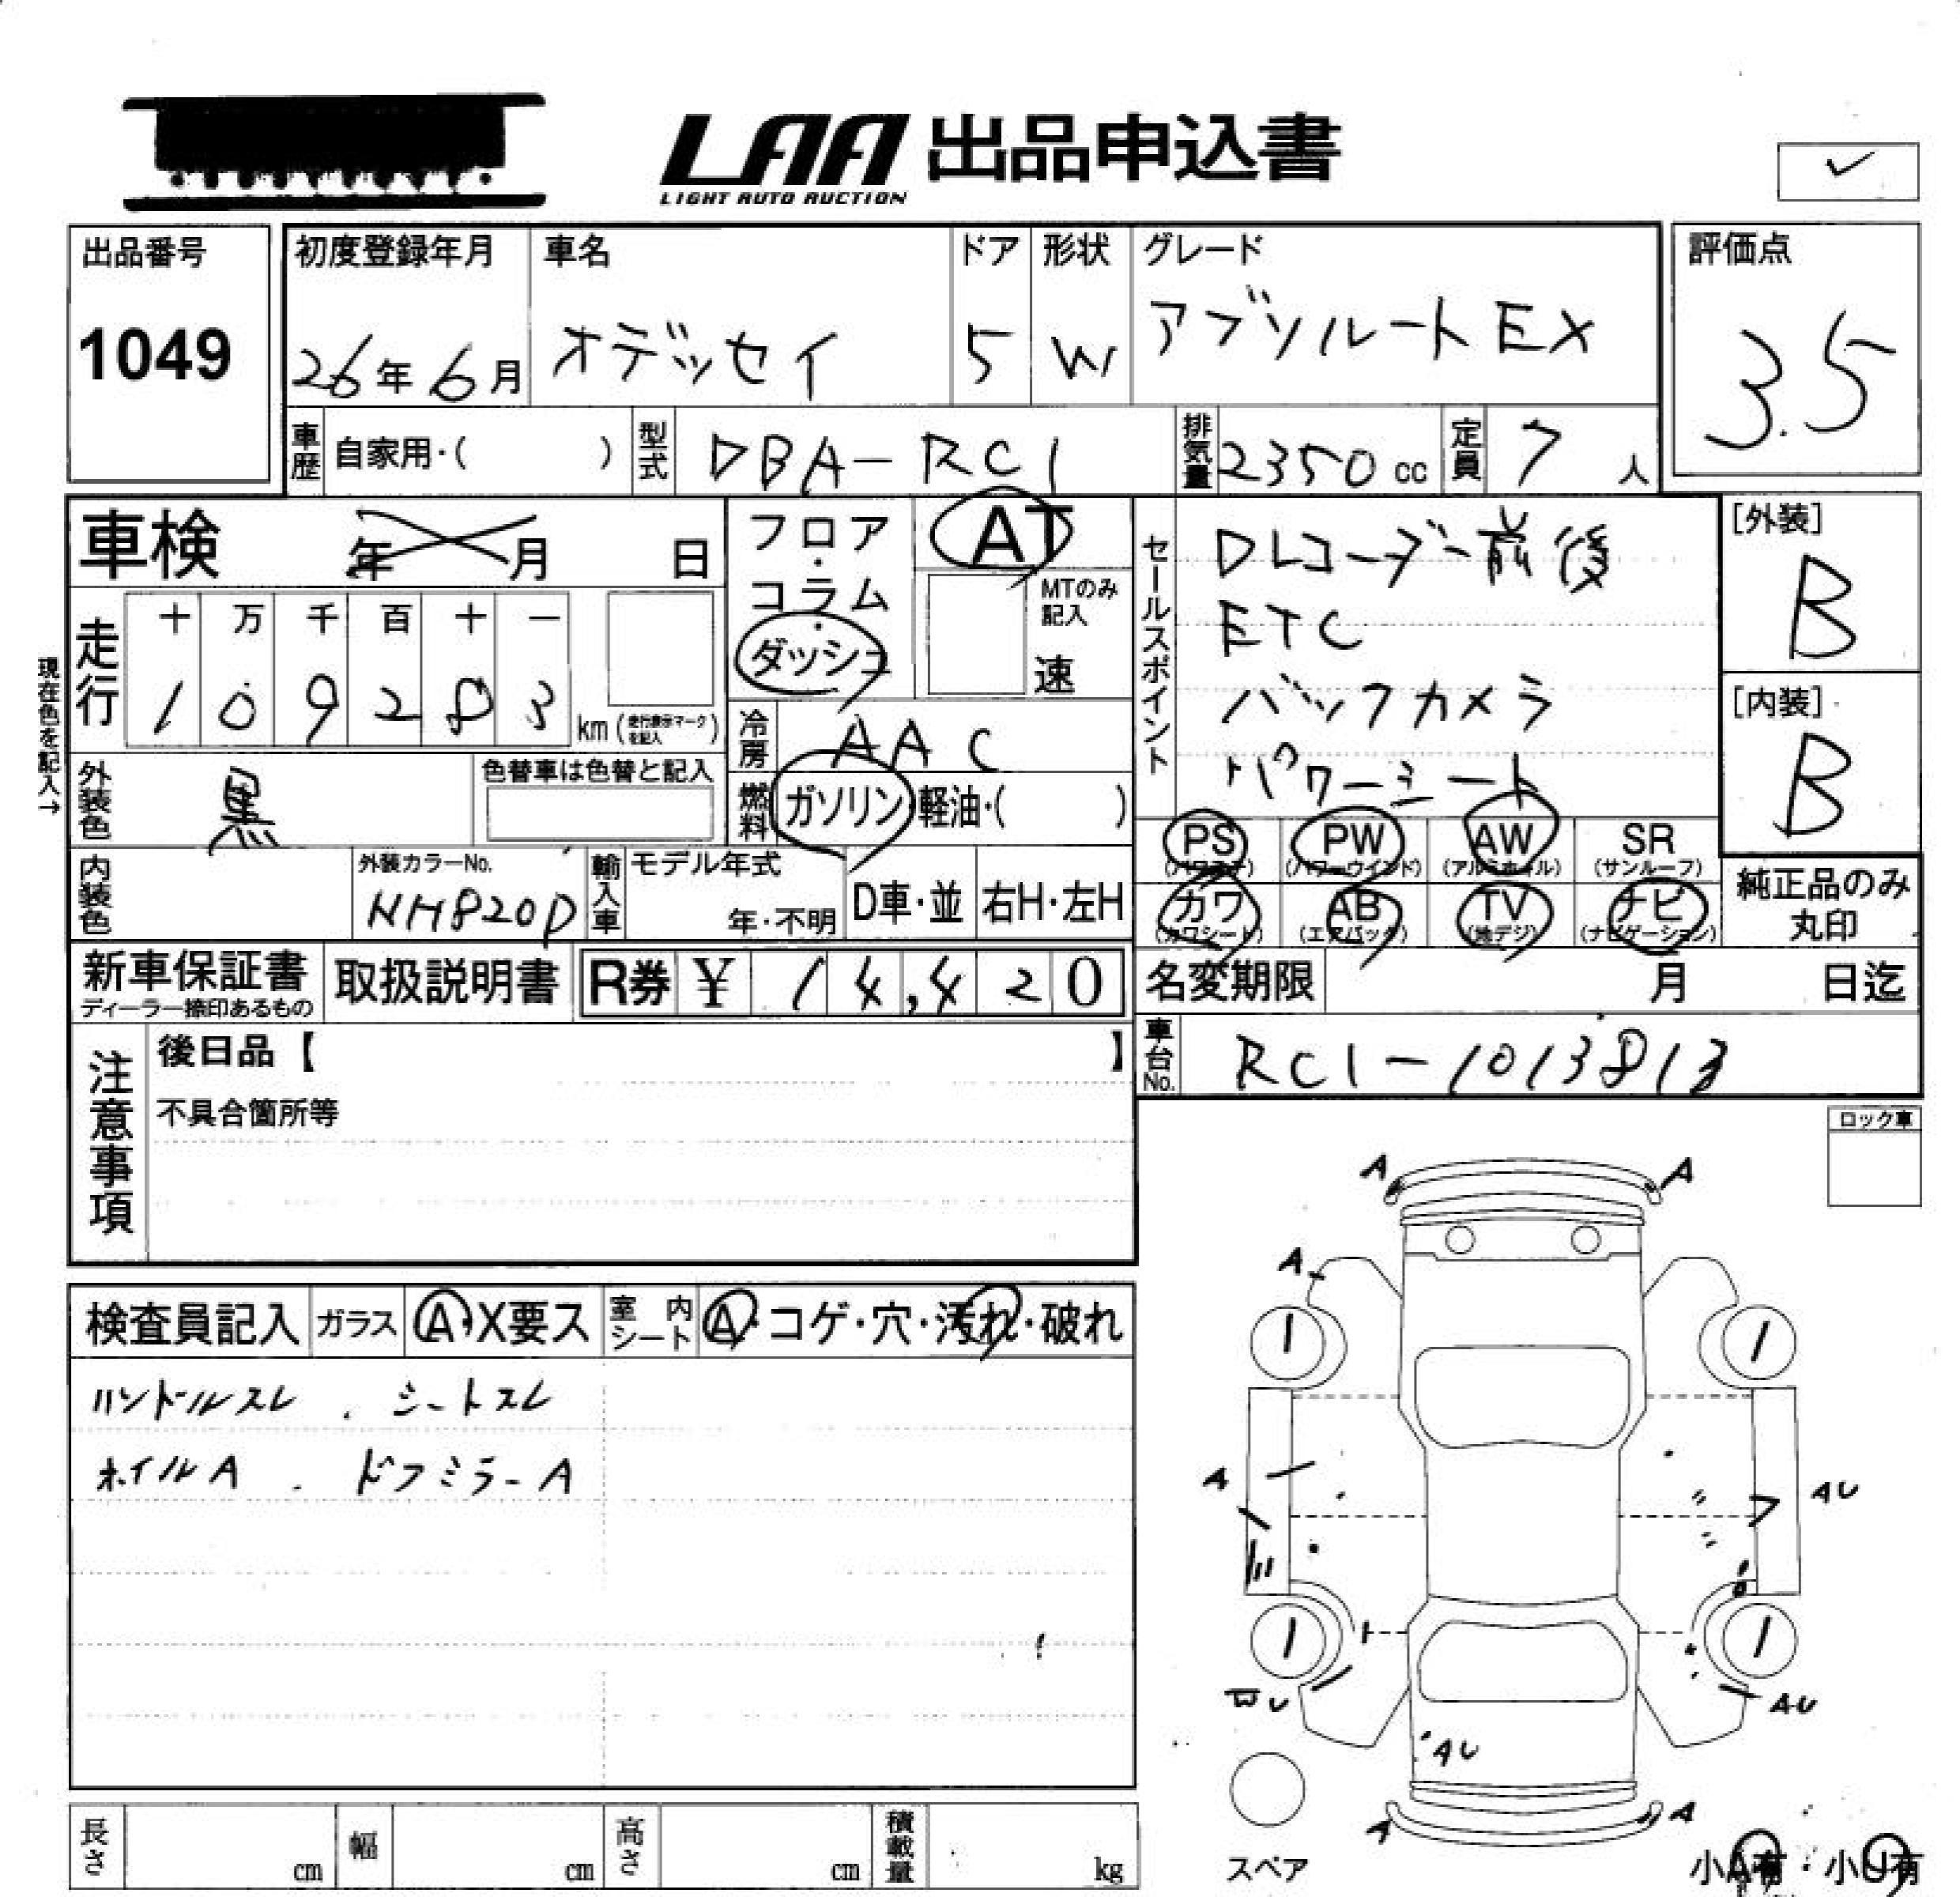 LAA 出品申込書
LIGHT AUTO AUCTION
✓
出品番号
1049
初度登録年月
26年6月
車名
オデッセイ
ドア
5
形状
W
グレード
アブソルートEX
評価点
3.5
車歴 自家用・( )
型式 DBA-RC1
排気量 2350cc
定員 7人
車検 年 月 日
フロア・コラム・ダッシュ
AT
MTのみ記入
速
セールスポイント
Dレコーダー前後
ETC
バックカメラ
パワーシート
[外装]
B
[内装]
B
現在色を記入→
走行
十 万 千 百 十 一
1 0 9 2 8 3 km (走行表示マークを記入)
冷房 AAC
外装色 黒
色替車は色替と記入
燃料 ガソリン・軽油・( )
PS (パワステ)
PW (パワーウインド)
AW (アルミホイル)
SR (サンルーフ)
カワ (カワシート)
AB (エアバック)
TV (地デジ)
ナビ (ナビゲーション)
純正品のみ丸印
内装色
外装カラーNo.
NH820P
輸入車
モデル年式
年・不明
D車・並
右H・左H
新車保証書
ディーラー捺印あるもの
取扱説明書
R券 ¥ 14,420
名変期限 月 日迄
車台No. RC1-1013813
注意事項
後日品【 】
不具合箇所等
ロック車
検査員記入
ガラス A・X要ス
室内シート A・コゲ・穴・汚れ・破れ
ハンドルスレ . シートスレ
ホイルA . ドアミラーA
A A
A
A
AU
AU
AU
A A
スペア
小A有・小U有
長さ cm
幅 cm
高さ cm
積載量 kg